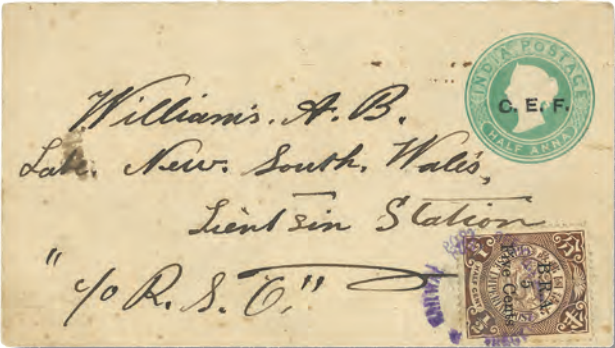 INDIA POSTAGE
C. E. F.
HALF ANNA
Williams. A. B.
Late. New. South. Wales,
Tientsin Station
"c/o R. S. O."
B.R.A.
5
Five Cents
1/2
HALF CENT
分